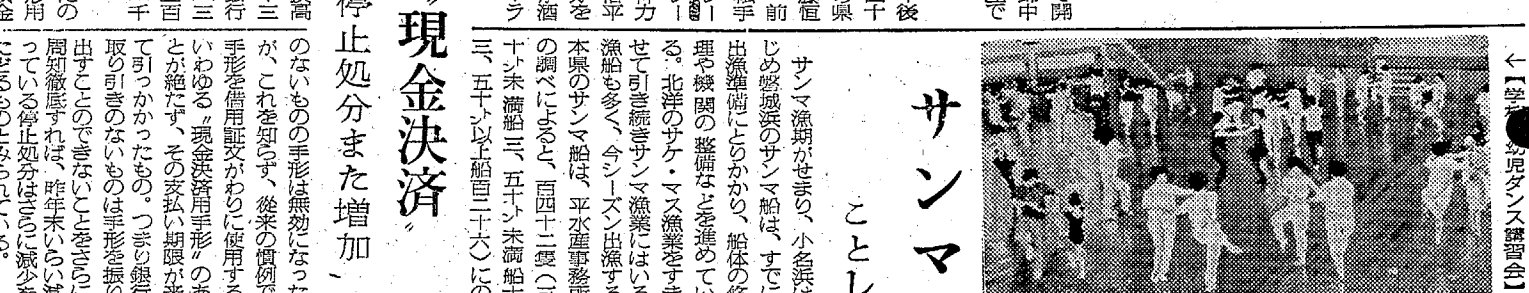 ←【学校幼児ダンス講習会】
サンマ
ことし
サンマ漁期がせまり、小名浜は
じめ磐城浜のサンマ船は、すでに
出漁準備にとりかかり、船体の修
理や機関の整備などを進めてい
る。北洋のサケ・マス漁業をすま
せて引き続きサンマ漁業にはいる
漁船も多く、今シーズン出漁する
本県のサンマ船は、平水産事務所
の調べによると、百四十二隻（三
十㌧未満船三、五十㌧未満船十
三、五十㌧以上船百二十六）にの
〝現金決済〟
停止処分また増加
のないものの手形は無効になった
が、これを知らず、従来の慣例で
手形を借用証文がわりに使用する
いわゆる〝現金決済用手形〟のあ
とが絶たず、その支払い期限が来
て引っかかったもの。つまり銀行
取り引きのないものは手形を振り
出すことのできないことをさらに
周知徹底すれば、昨年末いらい減
っている停止処分はさらに減少を